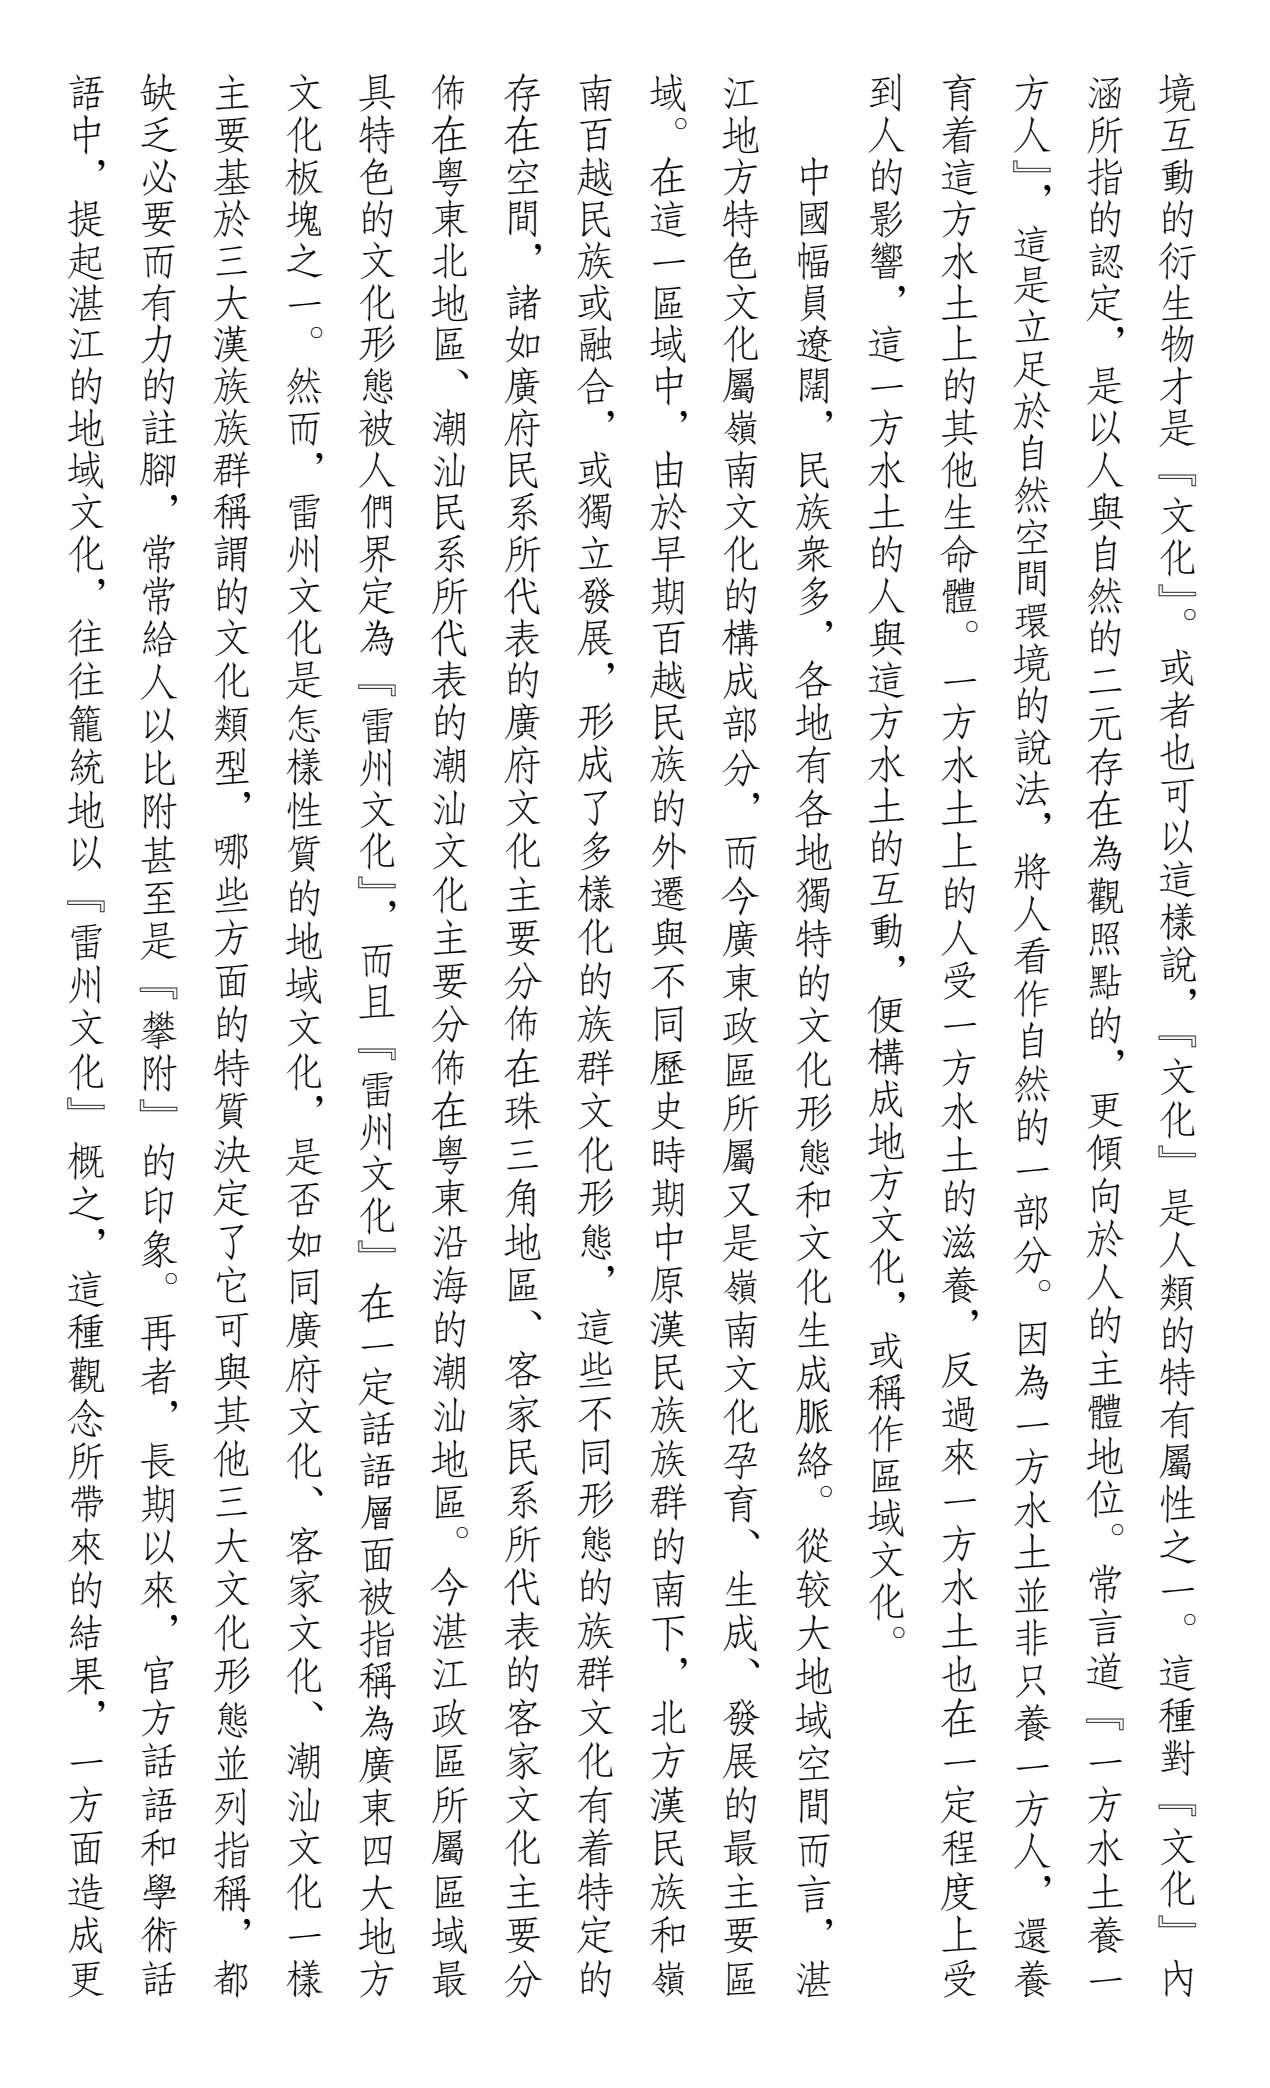 境互動的衍生物才是『文化』。或者也可以這樣說，『文化』是人類的特有屬性之一。這種對『文化』內
涵所指的認定，是以人與自然的二元存在為觀照點的，更傾向於人的主體地位。常言道『一方水土養一
方人』，這是立足於自然空間環境的說法，將人看作自然的一部分。因為一方水土並非只養一方人，還養
育着這方水土上的其他生命體。一方水土上的人受一方水土的滋養，反過來一方水土也在一定程度上受
到人的影響，這一方水土的人與這方水土的互動，便構成地方文化，或稱作區域文化。
中國幅員遼闊，民族衆多，各地有各地獨特的文化形態和文化生成脈絡。從较大地域空間而言，湛
江地方特色文化屬嶺南文化的構成部分，而今廣東政區所屬又是嶺南文化孕育、生成、發展的最主要區
域。在這一區域中，由於早期百越民族的外遷與不同歷史時期中原漢民族族群的南下，北方漢民族和嶺
南百越民族或融合，或獨立發展，形成了多樣化的族群文化形態，這些不同形態的族群文化有着特定的
存在空間，諸如廣府民系所代表的廣府文化主要分佈在珠三角地區、客家民系所代表的客家文化主要分
佈在粵東北地區、潮汕民系所代表的潮汕文化主要分佈在粵東沿海的潮汕地區。今湛江政區所屬區域最
具特色的文化形態被人們界定為『雷州文化』，而且『雷州文化』在一定話語層面被指稱為廣東四大地方
文化板塊之一。然而，雷州文化是怎樣性質的地域文化，是否如同廣府文化、客家文化、潮汕文化一樣
主要基於三大漢族族群稱謂的文化類型，哪些方面的特質決定了它可與其他三大文化形態並列指稱，都
缺乏必要而有力的註腳，常常給人以比附甚至是『攀附』的印象。再者，長期以來，官方話語和學術話
語中，提起湛江的地域文化，往往籠統地以『雷州文化』概之，這種觀念所帶來的結果，一方面造成更